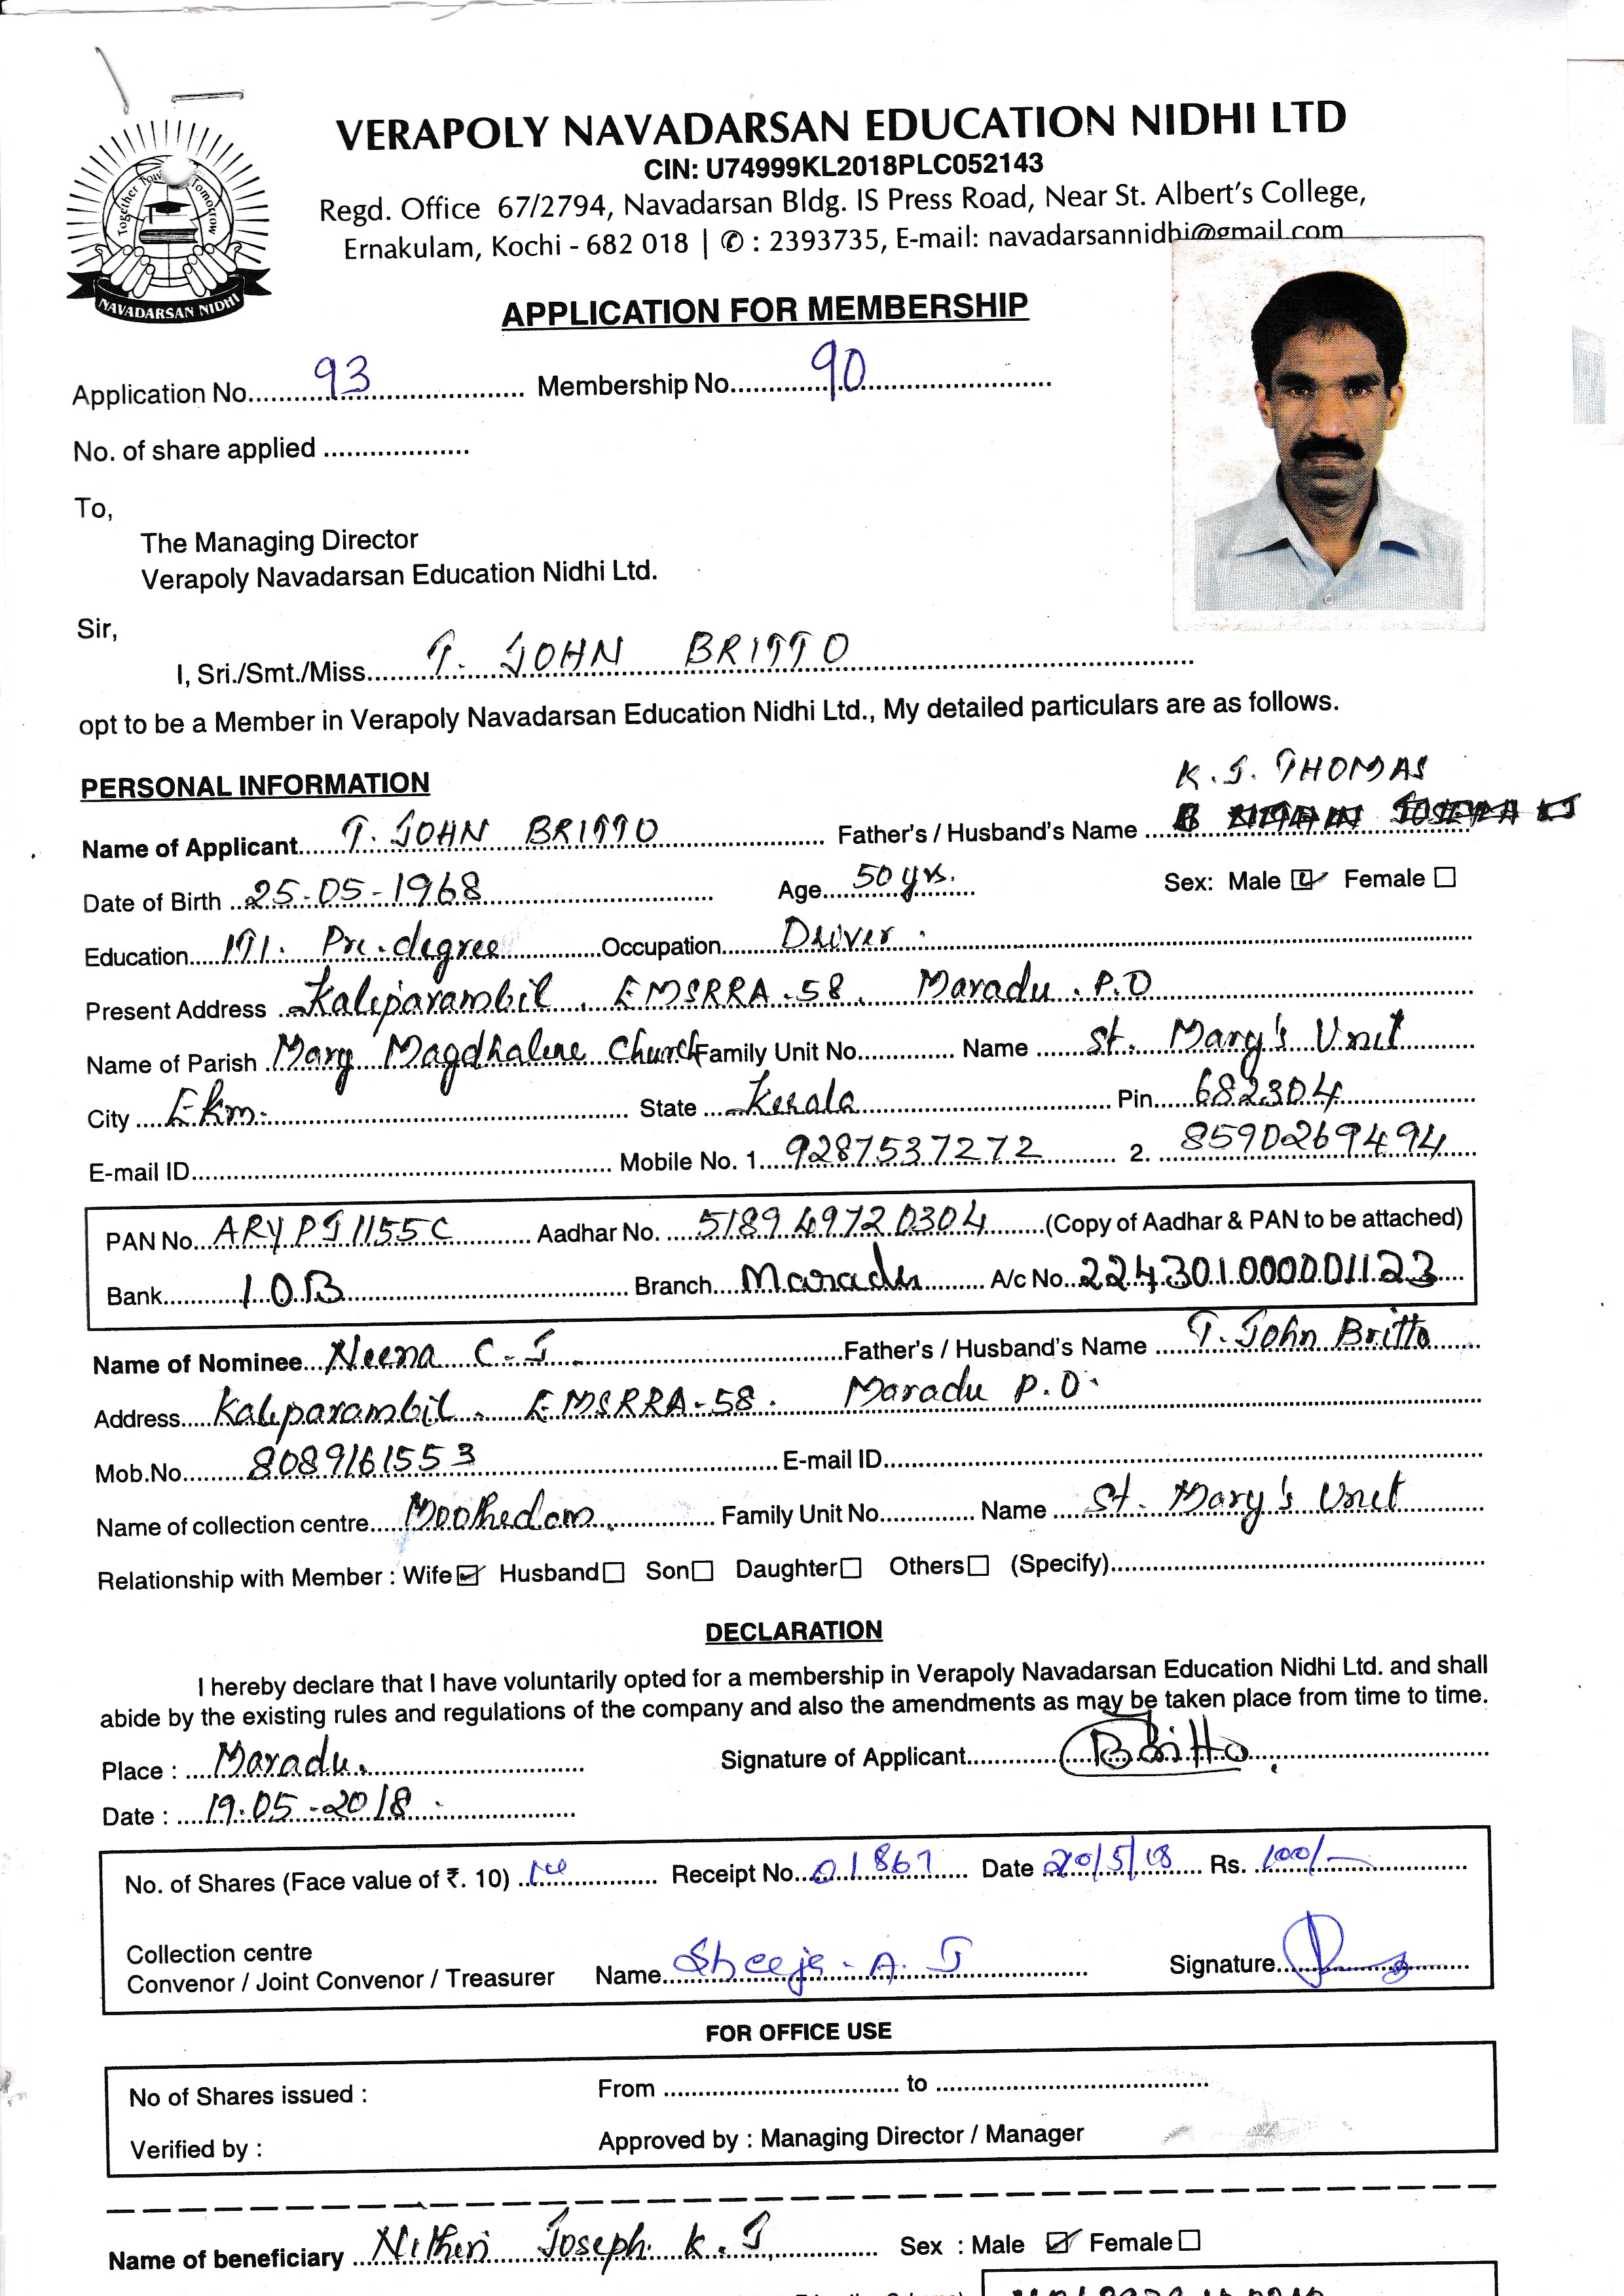 VERAPOLY NAVADARSAN EDUCATION NIDHI LTD
CIN: U74999KL2018PLC052143
Regd. Office 67/2794, Navadarsan Bldg. IS Press Road, Near St. Albert's College,
Ernakulam, Kochi - 682 018 | ✆ : 2393735, E-mail: navadarsannidhi@gmail.com
Together Towards Tomorrow
NAVADARSAN NIDHI
APPLICATION FOR MEMBERSHIP
Application No. 93 Membership No. 90
No. of share applied
To,
The Managing Director
Verapoly Navadarsan Education Nidhi Ltd.
Sir,
I, Sri./Smt./Miss. T. JOHN BRITTO
opt to be a Member in Verapoly Navadarsan Education Nidhi Ltd., My detailed particulars are as follows.
PERSONAL INFORMATION
K. J. THOMAS
Name of Applicant T. JOHN BRITTO Father's / Husband's Name
Date of Birth 25-05-1968 Age 50 yrs. Sex: Male ☑ Female ☐
Education Pre-degree Occupation Driver.
Present Address Kaliparambil, EMSRRA-58, Maradu. P.O
Name of Parish Mary Magdhalene Church Family Unit No. Name St. Mary's Unit
City Ekm. State Kerala Pin 682304
E-mail ID Mobile No. 1. 9287537272 2. 8590269494
PAN No. ARYPJ1155C Aadhar No. 518949720304 (Copy of Aadhar & PAN to be attached)
Bank IOB Branch Maradu A/c No. 224301000001123
Name of Nominee Neena C-J Father's / Husband's Name T. John Britto
Address Kaliparambil, EMSRRA-58. Maradu P.O.
Mob.No. 8089161553 E-mail ID
Name of collection centre Moothedam. Family Unit No. Name St. Mary's Unit
Relationship with Member : Wife ☑ Husband ☐ Son ☐ Daughter ☐ Others ☐ (Specify)
DECLARATION
I hereby declare that I have voluntarily opted for a membership in Verapoly Navadarsan Education Nidhi Ltd. and shall
abide by the existing rules and regulations of the company and also the amendments as may be taken place from time to time.
Place : Maradu. Signature of Applicant Britto
Date : 19-05-2018.
No. of Shares (Face value of ₹. 10) Receipt No. 01867 Date 20/5/18 Rs. 100/-
Collection centre
Convenor / Joint Convenor / Treasurer Name Sheeja - A. J Signature
FOR OFFICE USE
No of Shares issued : From to
Verified by : Approved by : Managing Director / Manager
Name of beneficiary Nithin Joseph. K. J Sex : Male ☑ Female ☐